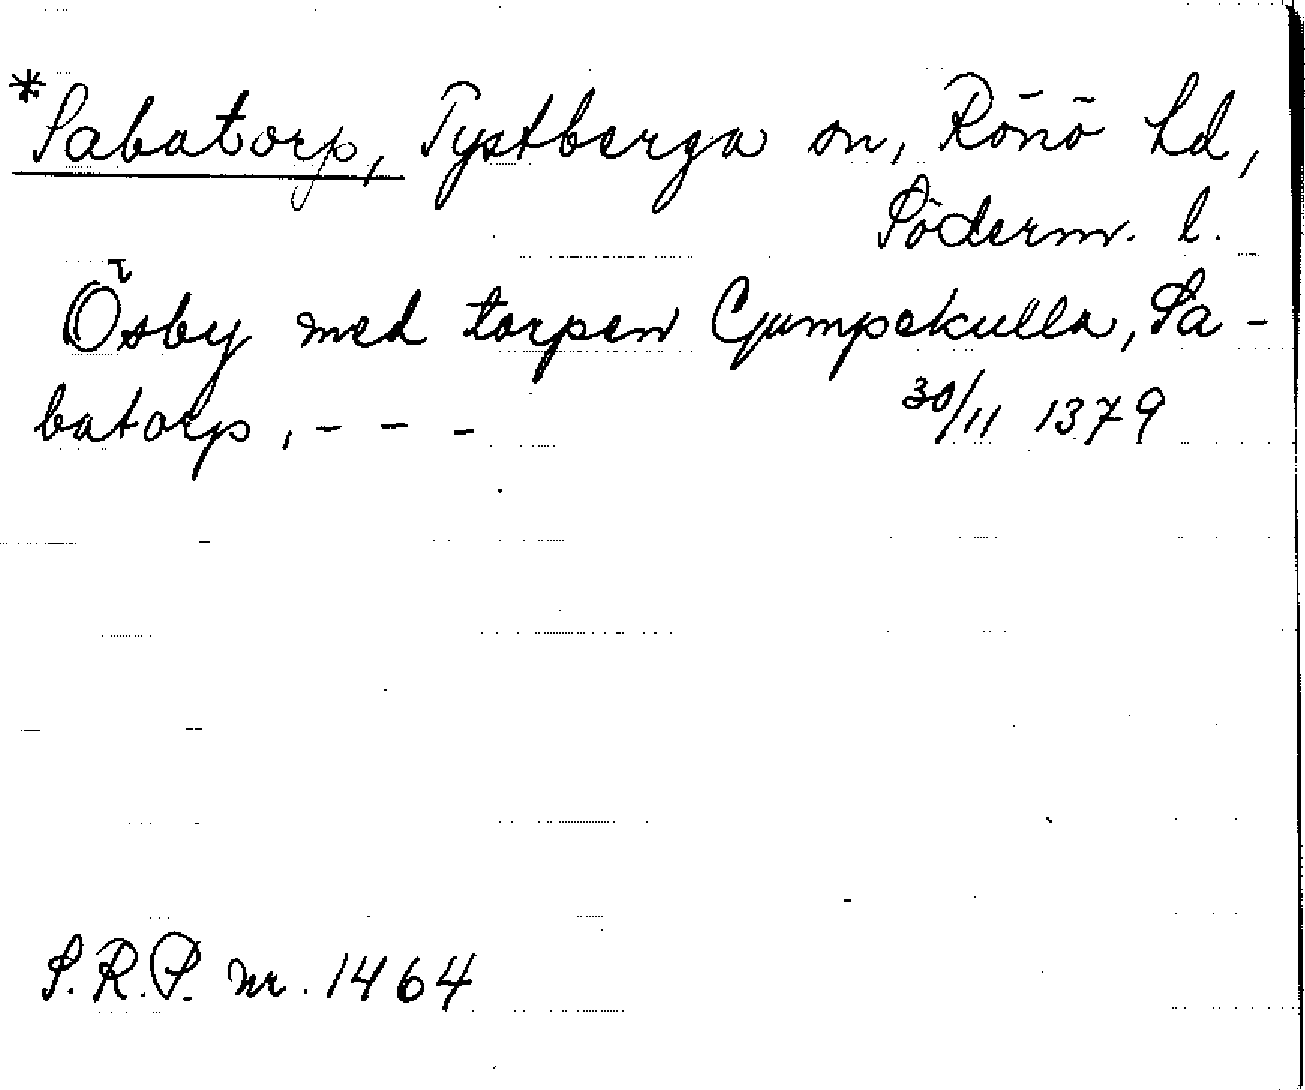 *Sabatorp, Tystberga sn, Rönö hd,
Söderm. l.
Ösby med torpen Gumpekulla, Sa-
batorp, - - - 30/11 1379
S.R.P. nr. 1464